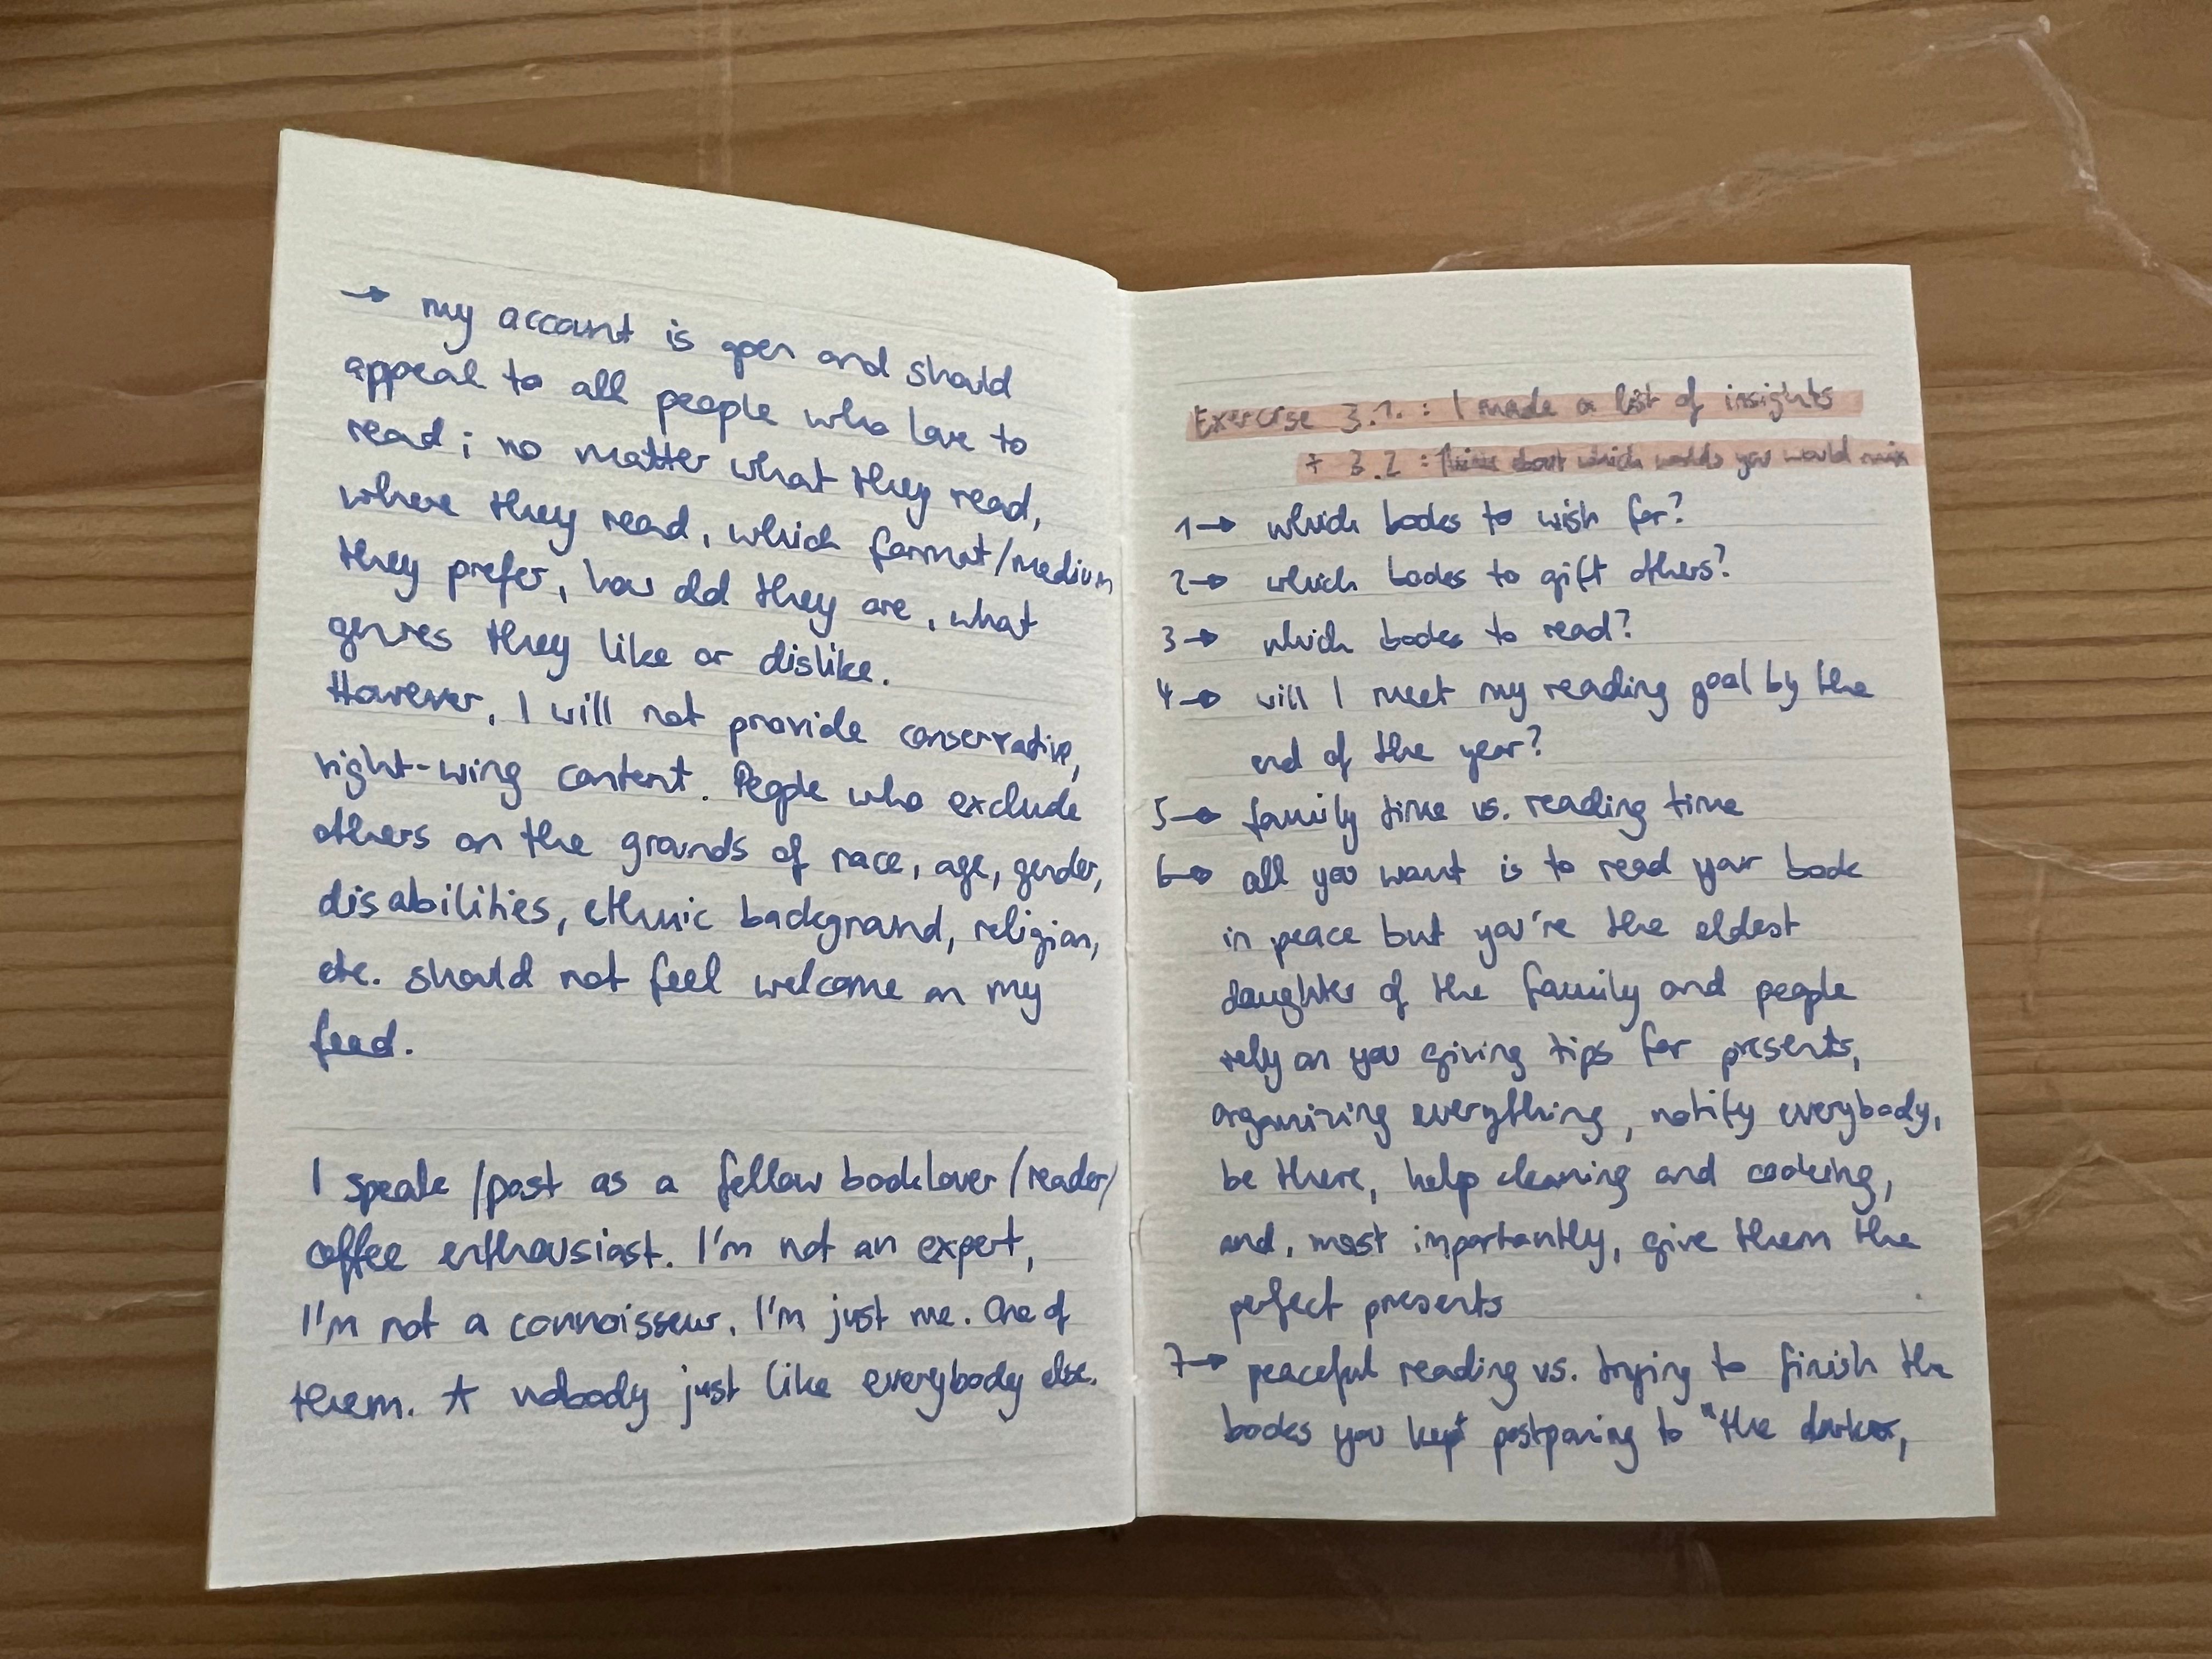 → my account is open and should
appeal to all people who love to
read; no matter what they read,
where they read, which format/medium
they prefer, how old they are, what
genres they like or dislike.
However, I will not provide conservative,
right-wing content. People who exclude
others on the grounds of race, age, gender,
disabilities, ethnic background, religion,
etc. should not feel welcome on my
feed.
I speak/post as a fellow booklover/reader/
coffee enthousiast. I'm not an expert,
I'm not a connoisseur. I'm just me. One of
them. ☆ nobody just like everybody else.
Exercise 3.1.: I made a list of insights
+ 3.2: Think about which worlds you would mix
1→ which books to wish for?
2→ which books to gift others?
3→ which books to read?
4→ will I meet my reading goal by the
end of the year?
5→ family time vs. reading time
6→ all you want is to read your book
in peace but you're the eldest
daughter of the family and people
rely on you giving tips for presents,
organizing everything, notify everybody,
be there, help cleaning and cooking,
and, most importantly, give them the
perfect presents
7→ peaceful reading vs. trying to finish the
books you kept postponing to "the darker,